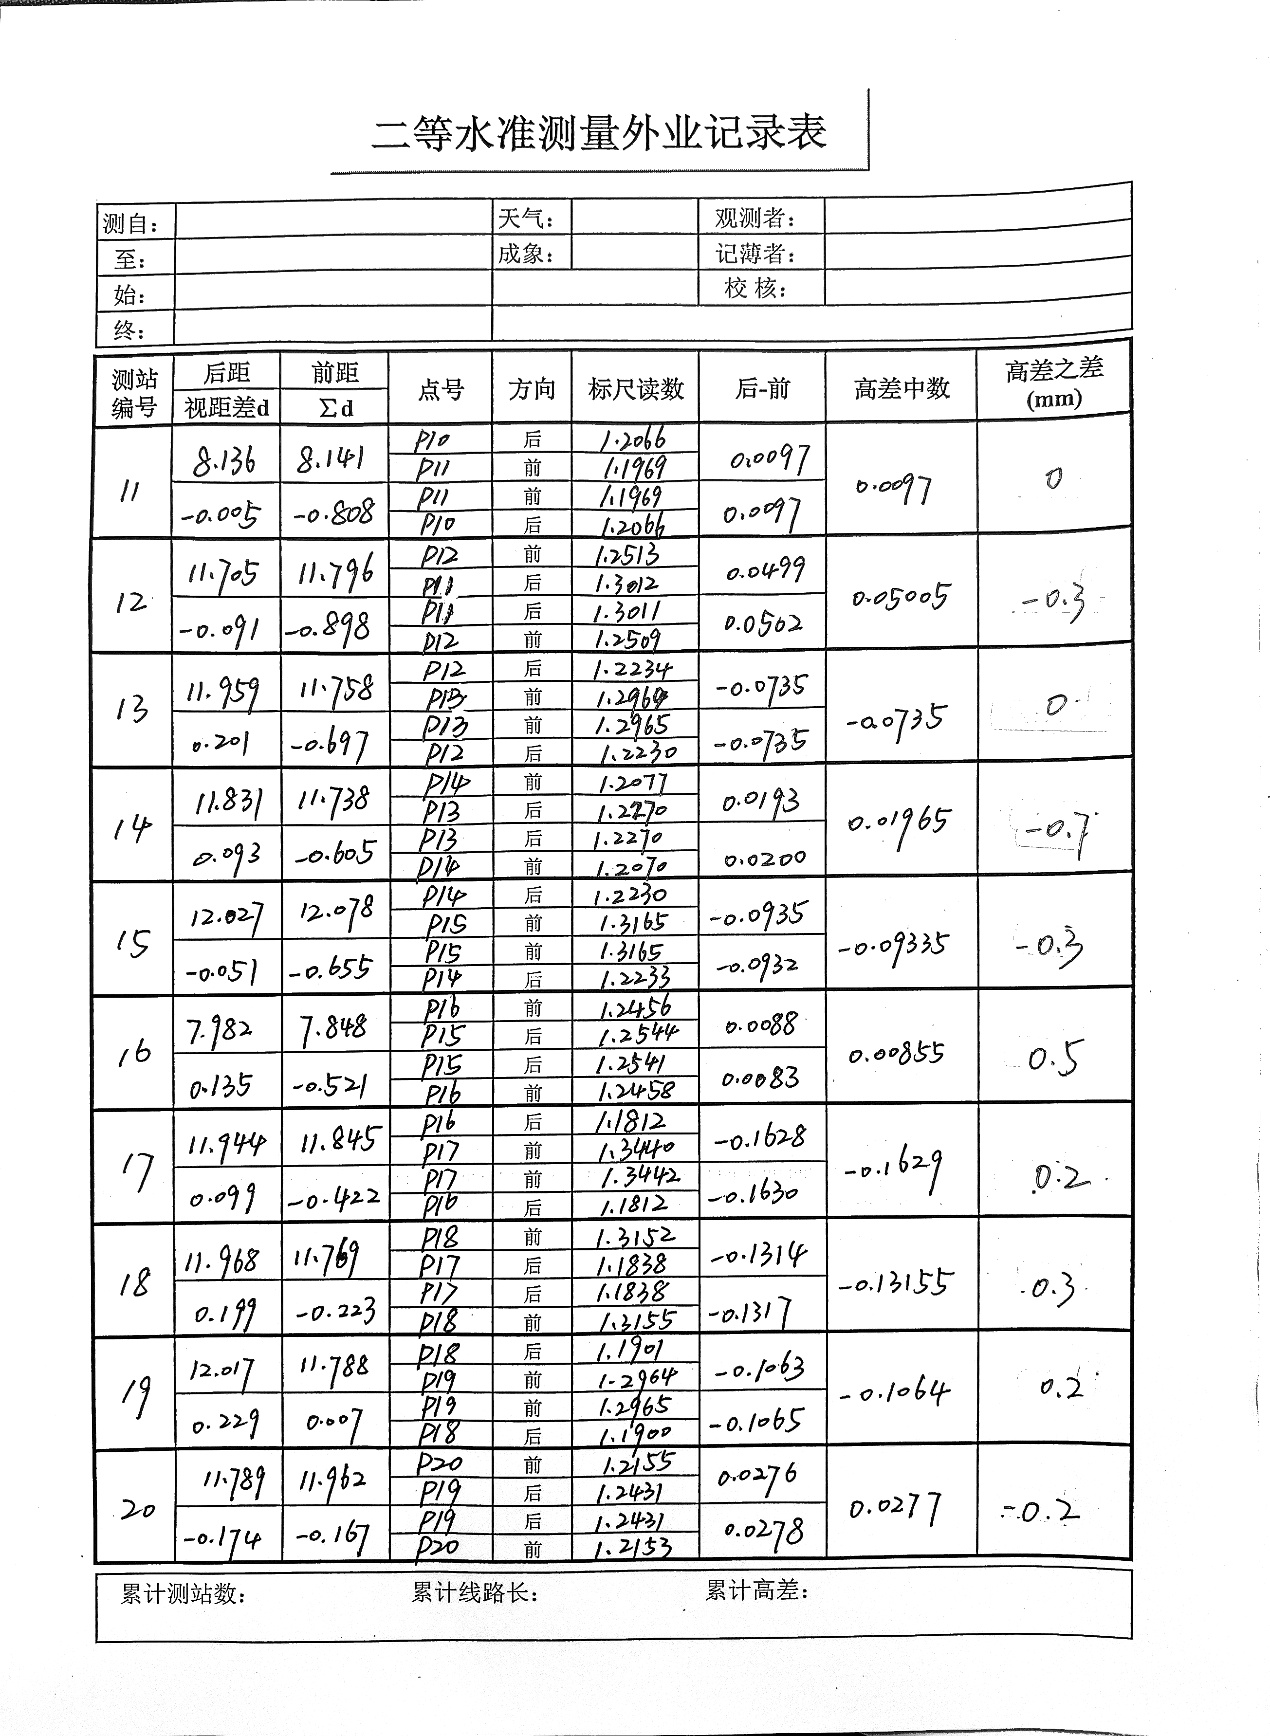 二等水准测量外业记录表
测自： 天气： 观测者：
至： 成象： 记薄者：
始： 校 核：
终：
测站编号 后距 前距 点号 方向 标尺读数 后-前 高差中数 高差之差(mm)
视距差d Σd
11 8.136 8.141 P10 后 1.2066 0.0097 0.0097 0
P11 前 1.1969
-0.005 -0.808 P11 前 1.1969 0.0097
P10 后 1.2066
12 11.705 11.796 P12 前 1.2513 0.0499 0.05005 -0.3
P11 后 1.3012
-0.091 -0.898 P11 后 1.3011 0.0502
P12 前 1.2509
13 11.959 11.758 P12 后 1.2234 -0.0735 -0.0735 0
P13 前 1.2969
0.201 -0.697 P13 前 1.2965 -0.0735
P12 后 1.2230
14 11.831 11.738 P14 前 1.2077 0.0193 0.01965 -0.7
P13 后 1.2270
0.093 -0.605 P13 后 1.2270 0.0200
P14 前 1.2070
15 12.027 12.078 P14 后 1.2230 -0.0935 -0.09335 -0.3
P15 前 1.3165
-0.051 -0.655 P15 前 1.3165 -0.0932
P14 后 1.2233
16 7.982 7.848 P16 前 1.2456 0.0088 0.00855 0.5
P15 后 1.2544
0.135 -0.521 P15 后 1.2541 0.0083
P16 前 1.2458
17 11.944 11.845 P16 后 1.1812 -0.1628 -0.1629 0.2
P17 前 1.3440
0.099 -0.422 P17 前 1.3442 -0.1630
P16 后 1.1812
18 11.968 11.769 P18 前 1.3152 -0.1314 -0.13155 0.3
P17 后 1.1838
0.199 -0.223 P17 后 1.1838 -0.1317
P18 前 1.3155
19 12.017 11.788 P18 后 1.1901 -0.1063 -0.1064 0.2
P19 前 1.2964
0.229 0.007 P19 前 1.2965 -0.1065
P18 后 1.1900
20 11.789 11.962 P20 前 1.2155 0.0276 0.0277 -0.2
P19 后 1.2431
-0.174 -0.167 P19 后 1.2431 0.0278
P20 前 1.2153
累计测站数： 累计线路长： 累计高差：